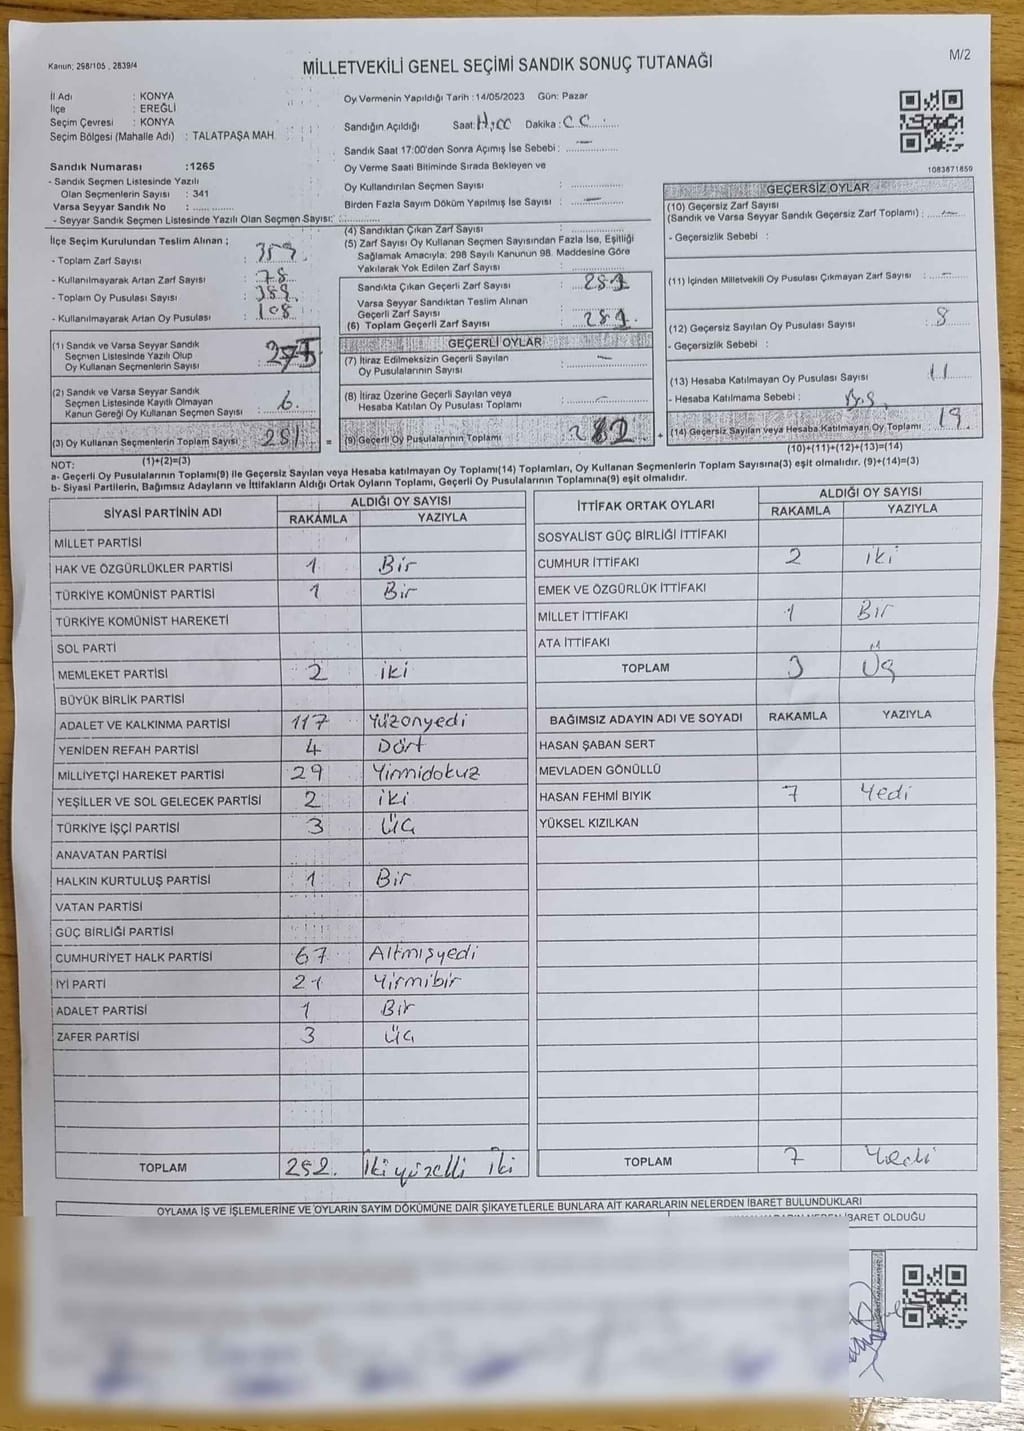 Kanun; 298/105 , 2839/4
MİLLETVEKİLİ GENEL SEÇİMİ SANDIK SONUÇ TUTANAĞI
M/2
İl Adı : KONYA
İlçe : EREĞLİ
Seçim Çevresi : KONYA
Seçim Bölgesi (Mahalle Adı) : TALATPAŞA MAH.
Sandık Numarası :1265
- Sandık Seçmen Listesinde Yazılı
Olan Seçmenlerin Sayısı : 341
Varsa Seyyar Sandık No :
- Seyyar Sandık Seçmen Listesinde Yazılı Olan Seçmen Sayısı:
Oy Vermenin Yapıldığı Tarih :14/05/2023 Gün: Pazar
Sandığın Açıldığı Saat: Dakika :
Sandık Saat 17:00'den Sonra Açımış İse Sebebi : —
Oy Verme Saati Bitiminde Sırada Bekleyen ve
Oy Kullandırılan Seçmen Sayısı :
Birden Fazla Sayım Döküm Yapılmış İse Sayısı : —
1083671859
İlçe Seçim Kurulundan Teslim Alınan ;
- Toplam Zarf Sayısı :
- Kullanılmayarak Artan Zarf Sayısı : 78
- Toplam Oy Pusulası Sayısı :
- Kullanılmayarak Artan Oy Pusulası : 108
(1) Sandık ve Varsa Seyyar Sandık
Seçmen Listesinde Yazılı Olup
Oy Kullanan Seçmenlerin Sayısı : 275
(2) Sandık ve Varsa Seyyar Sandık
Seçmen Listesinde Kayıtlı Olmayan
Kanun Gereği Oy Kullanan Seçmen Sayısı : 6
(3) Oy Kullanan Seçmenlerin Toplam Sayısı : 281
(1)+(2)=(3)
(4) Sandıktan Çıkan Zarf Sayısı :
(5) Zarf Sayısı Oy Kullanan Seçmen Sayısından Fazla İse, Eşitliği
Sağlamak Amacıyla; 298 Sayılı Kanunun 98. Maddesine Göre
Yakılarak Yok Edilen Zarf Sayısı :
Sandıkta Çıkan Geçerli Zarf Sayısı : 281
Varsa Seyyar Sandıktan Teslim Alınan
Geçerli Zarf Sayısı :
(6) Toplam Geçerli Zarf Sayısı : 281
GEÇERLİ OYLAR
(7) İtiraz Edilmeksizin Geçerli Sayılan
Oy Pusulalarının Sayısı : —
(8) İtiraz Üzerine Geçerli Sayılan veya
Hesaba Katılan Oy Pusulası Toplamı : —
= (9) Geçerli Oy Pusulalarının Toplamı :
GEÇERSİZ OYLAR
(10) Geçersiz Zarf Sayısı
(Sandık ve Varsa Seyyar Sandık Geçersiz Zarf Toplamı) : —
- Geçersizlik Sebebi :
(11) İçinden Milletvekili Oy Pusulası Çıkmayan Zarf Sayısı : —
(12) Geçersiz Sayılan Oy Pusulası Sayısı : 8
- Geçersizlik Sebebi :
(13) Hesaba Katılmayan Oy Pusulası Sayısı : 11
- Hesaba Katılmama Sebebi :
+ (14) Geçersiz Sayılan veya Hesaba Katılmayan Oy Toplamı : 19.
(10)+(11)+(12)+(13)=(14)
NOT:
a- Geçerli Oy Pusulalarının Toplamı(9) ile Geçersiz Sayılan veya Hesaba katılmayan Oy Toplamı(14) Toplamları, Oy Kullanan Seçmenlerin Toplam Sayısına(3) eşit olmalıdır. (9)+(14)=(3)
b- Siyasi Partilerin, Bağımsız Adayların ve İttifakların Aldığı Ortak Oyların Toplamı, Geçerli Oy Pusulalarının Toplamına(9) eşit olmalıdır.
SİYASİ PARTİNİN ADI ALDIĞI OY SAYISI
RAKAMLA YAZIYLA
MİLLET PARTİSİ
HAK VE ÖZGÜRLÜKLER PARTİSİ 1 Bir
TÜRKİYE KOMÜNİST PARTİSİ 1 Bir
TÜRKİYE KOMÜNİST HAREKETİ
SOL PARTİ
MEMLEKET PARTİSİ 2 iki
BÜYÜK BİRLİK PARTİSİ
ADALET VE KALKINMA PARTİSİ 117 Yüzonyedi
YENİDEN REFAH PARTİSİ 4 Dört
MİLLİYETÇİ HAREKET PARTİSİ 29 Yirmidokuz
YEŞİLLER VE SOL GELECEK PARTİSİ 2 iki
TÜRKİYE İŞÇİ PARTİSİ 3 Üç
ANAVATAN PARTİSİ
HALKIN KURTULUŞ PARTİSİ 1 Bir
VATAN PARTİSİ
GÜÇ BİRLİĞİ PARTİSİ
CUMHURİYET HALK PARTİSİ 67 Altmışyedi
İYİ PARTİ 21 Yirmibir
ADALET PARTİSİ 1 Bir
ZAFER PARTİSİ 3 Üç
TOPLAM 252. İkiyüzelli İki
İTTİFAK ORTAK OYLARI ALDIĞI OY SAYISI
RAKAMLA YAZIYLA
SOSYALİST GÜÇ BİRLİĞİ İTTİFAKI
CUMHUR İTTİFAKI 2 iki
EMEK VE ÖZGÜRLÜK İTTİFAKI
MİLLET İTTİFAKI 1 Bir
ATA İTTİFAKI
TOPLAM 3 Üç
BAĞIMSIZ ADAYIN ADI VE SOYADI RAKAMLA YAZIYLA
HASAN ŞABAN SERT
MEVLADEN GÖNÜLLÜ
HASAN FEHMİ BIYIK 7 Yedi
YÜKSEL KIZILKAN
TOPLAM 7 Yedi
OYLAMA İŞ VE İŞLEMLERİNE VE OYLARIN SAYIM DÖKÜMÜNE DAİR ŞİKAYETLERLE BUNLARA AİT KARARLARIN NELERDEN İBARET BULUNDUKLARI
İBARET OLDUĞU